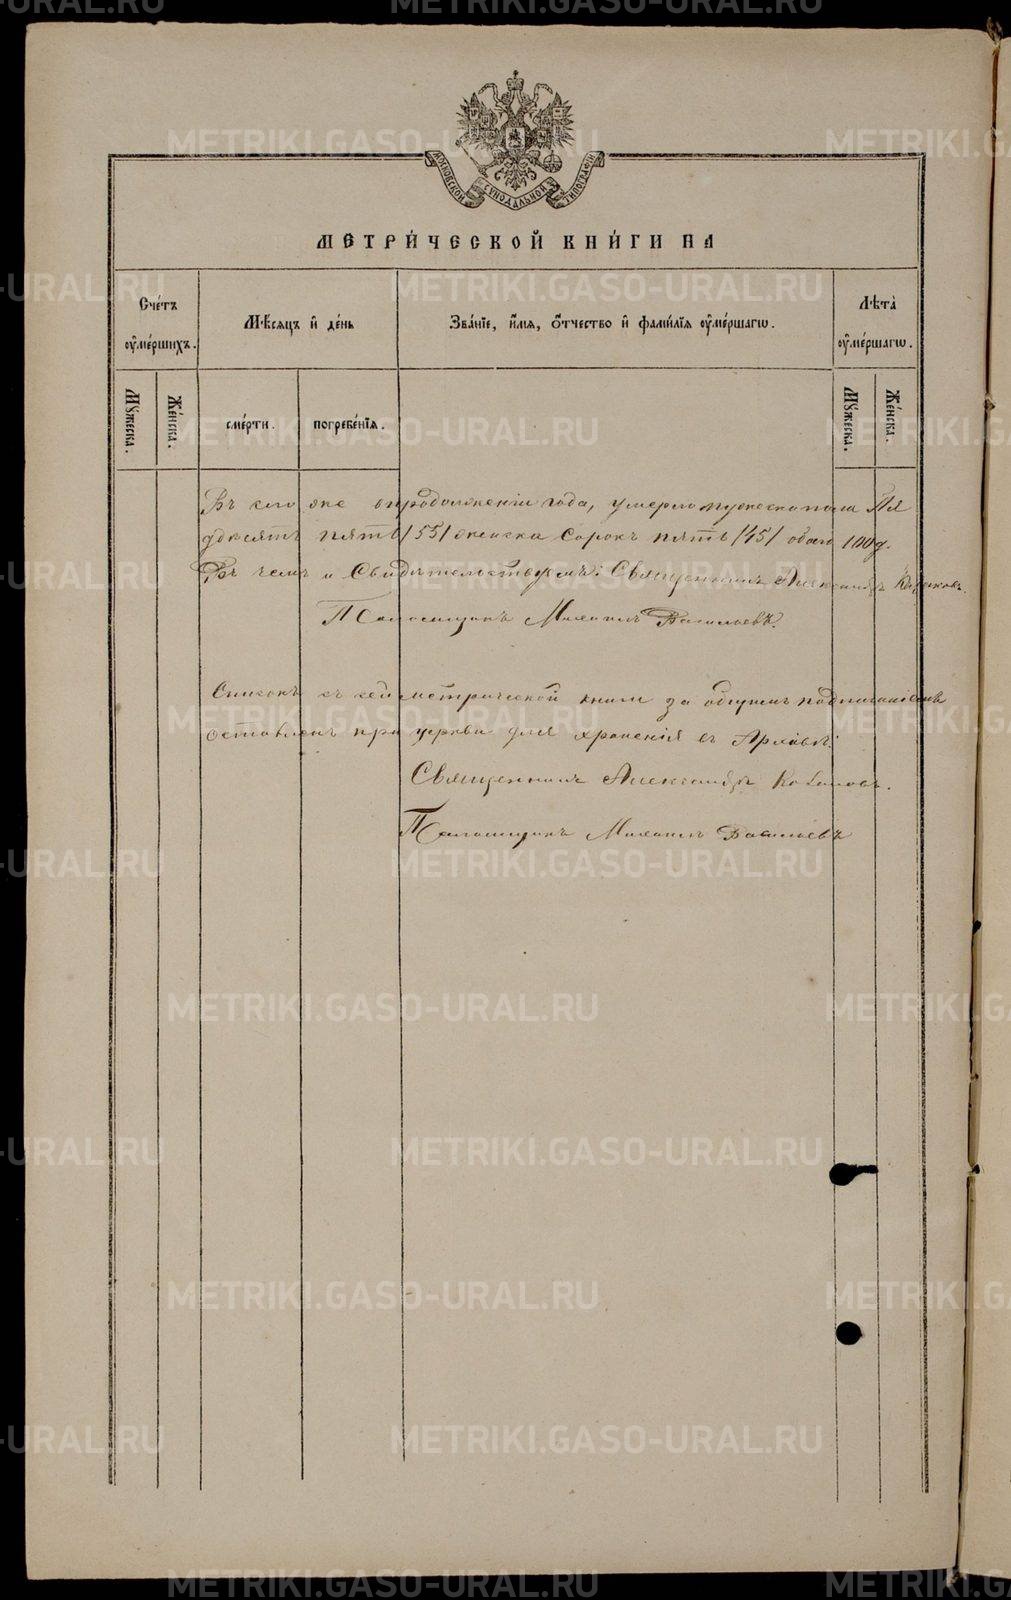 МОСКОВСКОЙ СѴНОДАЛЬНОЙ ТИПОГРАФІИ
МЕТРИ́ЧЕСКОЙ КНИ́ГИ НА
Сче́тъ ᲂу҆ме́ршихъ.
Мѣ́сяцъ и҆ де́нь
Зва́нїе, и҆́мѧ, ѻ҆́тчество и҆ фами́лїѧ ᲂу҆ме́ршагѡ.
Лѣ̑та ᲂу҆ме́ршагѡ.
Мꙋ́жеска.
Же́нска.
сме́рти.
погребе́нїѧ.
Мꙋ́жеска.
Же́нска.
Въ сего же продолженіи года, умерло мужеска пола Пя
дѣсятъ пять /55/ женска Сорокъ пять /45/ обоего 100 д.
Въ чемъ и Свидѣтельствуемъ: Священникъ Александръ
Псаломщикъ Михаилъ Васильевъ.
Списокъ съ сей метрической книги за общимъ подписаніемъ
оставленъ при церкви для храненія въ Архивѣ:
Священникъ Александръ
Псаломщикъ Михаилъ Васильевъ
METRIKI.GASO-URAL.RU